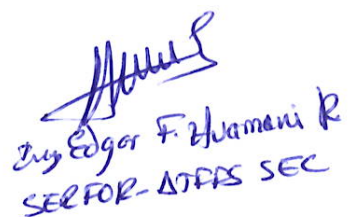 Ing Edgar F. Huamani R
SERFOR-ATFFS SEC